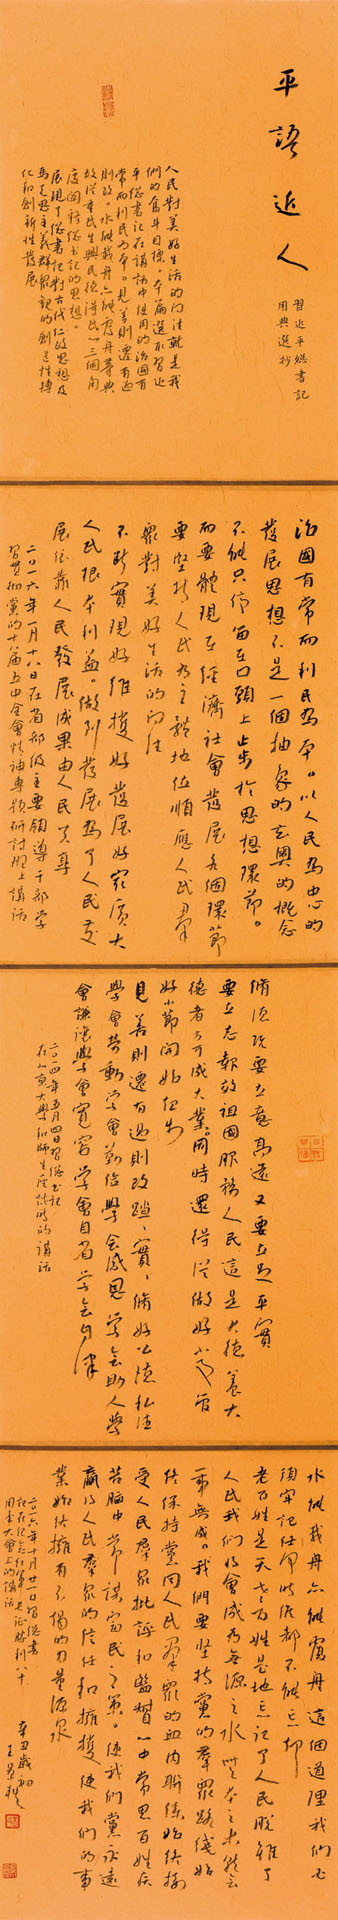 平語近人
習近平總書記
用典選抄
人民對美好生活的向往就是我
們的奮斗目標。本篇選取習近
平總書記在講話中使用的治國有
常而利民為本。見善則遷有過
則改。水能載舟亦能覆舟等典
故從重民生興民德得民心三個角
度闡釋總書記的思想
展現了總書記對古代仁政思想及
馬克思主義群眾觀的創造性轉
化和創新性發展
治國有常而利民為本。以人民為中心的
發展思想不是一個抽象的玄奧的概念
不能只停留在口頭上止步於思想環節。
而要體現在經濟社會發展各個環節
要堅持人民為主體地位順應人民群
眾對美好生活的向往
不斷實現好維護好發展好最廣大
人民根本利益。做到發展為了人民發
展依靠人民發展成果由人民共享
二〇一六年一月十八日在省部級主要領導干部學
習貫徹黨的十八屆五中全會精神專題研討班上講話
修德既要立意高遠又要立足平實
要立志報效祖國服務人民這是大德養大
德者方可成大業。同時還得從做好小事管
好小節開始起步
見善則遷有過則改踏踏實實修好公德私德
學會勞動學會勤儉學會感恩學會助人學
會謙讓學會寬容學會自省學會自律
二〇一四年五月四日習總書記
在北京大學和師生座談時的講話
水能載舟亦能覆舟這個道理我們必
須牢記任何時候都不能忘卻
老百姓是天老百姓是地忘記了人民脫離了
人民我們就會成為無源之水無本之木就會
一事無成。我們要堅持黨的群眾路線始
終保持黨同人民群眾的血肉聯係始終接
受人民群眾批評和監督心中常思百姓疾
苦腦中常謀富民之策。使我們黨永遠
贏得人民群眾的信任和擁護使我們的事
業始終擁有不竭的力量源泉
二〇一六年十月廿一日習總書
記在紀念紅軍長征勝利八十
周年大會上的講話
辛丑歲初